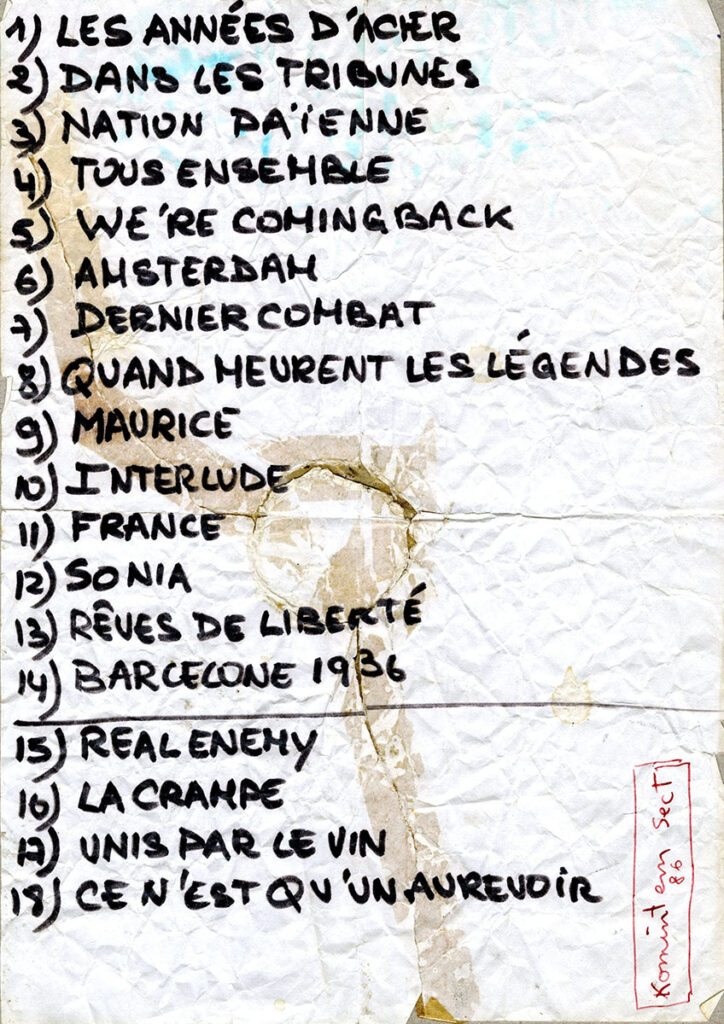 1) LES ANNÉES D'ACIER
2) DANS LES TRIBUNES
3) NATION PAÏENNE
4) TOUS ENSEMBLE
5) WE'RE COMING BACK
6) AMSTERDAM
7) DERNIER COMBAT
8) QUAND MEURENT LES LÉGENDES
9) MAURICE
10) INTERLUDE
11) FRANCE
12) SONIA
13) RÊVES DE LIBERTÉ
14) BARCELONE 1936
15) REAL ENEMY
16) LA CRAMPE
17) UNIS PAR LE VIN
18) CE N'EST QU'UN AUREVOIR
Komintern Sect
86